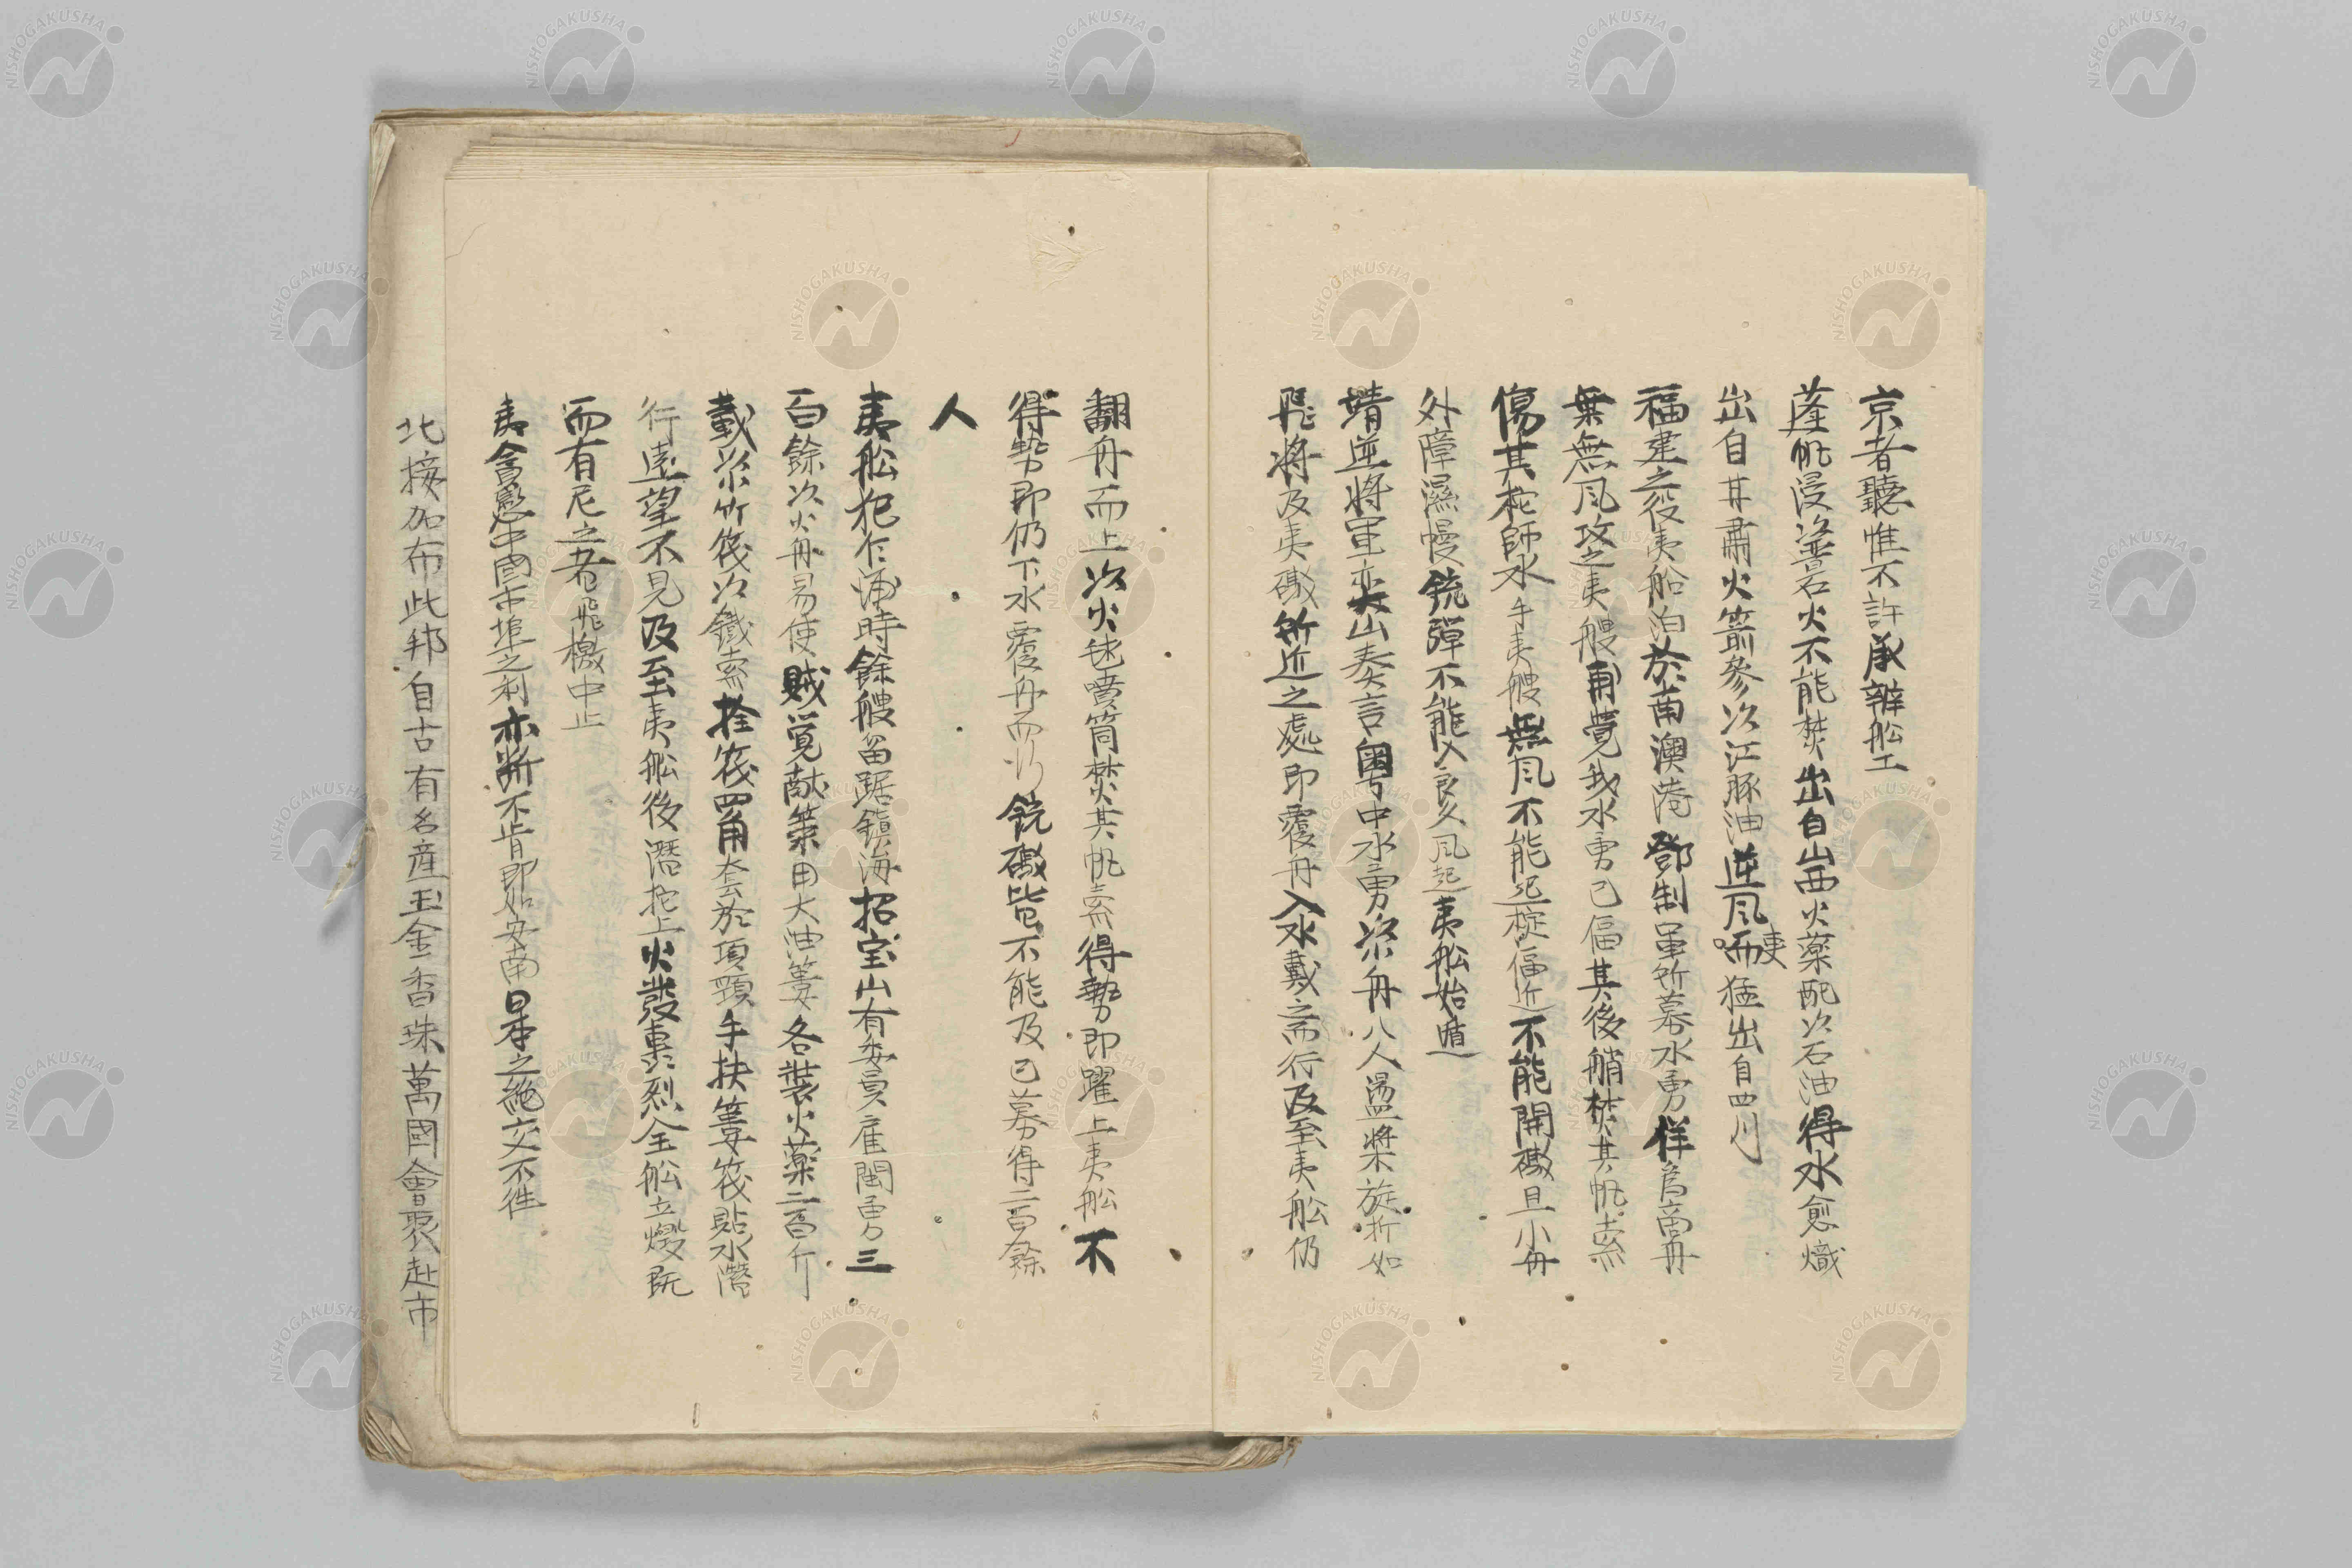 京者聽惟不許承辦船工
蓬帆浸塗礬石火不能焚出自山西火藥配以石油得水愈熾
出自甘肅火箭參以江豚油逆風而更猛出自四川
福建之役夷船泊於南澳港鄧制軍所募水勇佯為商舟
乗無風攻之夷艘甫覺我水勇已偪其後艄焚其帆索
傷其柁師水手夷艘無風不能起椗偪近不能開礮且小舟
外障濕幔銃彈不能入良久風起夷船始遁
靖逆將軍奕山奏言粵中水勇以小舟八人盪槳旋折如
飛將及夷礮所近之處即覆舟入水戴之而行及至夷船仍
翻舟而上以火毬噴筒焚其帆索得勢即躍上夷船不
得勢即仍下水覆舟而行銃礮皆不能及已募得二百餘
人
夷船犯乍浦時餘艘留踞鎮海招宝山有委員雇閩勇三
百餘以火舟易使賊覚献策用大油簍各装火藥二百斤
載以竹筏以鐵索拴筏四角套於項頸手扶簍筏貼水潛
行遠望不見及至夷船後潛挖上火發轟烈全船立燬既
而有尼之者飛檄中止
夷會戀中國市埠之利亦断不肯即如安南日本之絶交不徃
北接加布此邦自古有名産玉金香珠萬國會聚赴市
NISHOGAKUSHA